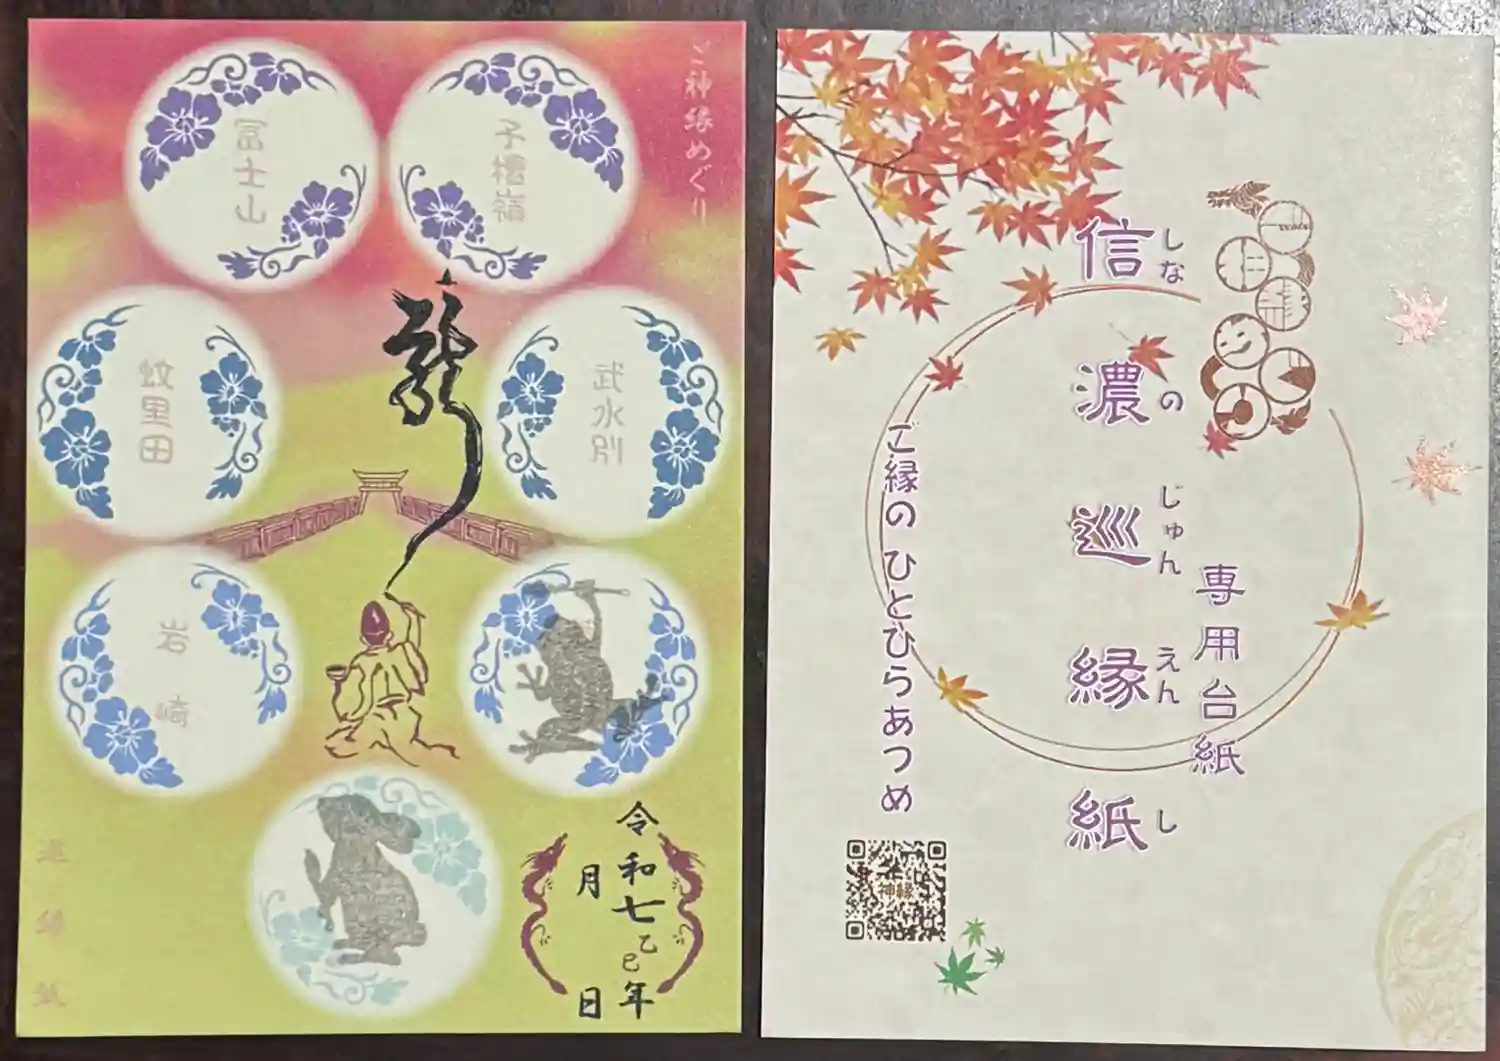 ご神縁めぐり
子檀嶺
冨士山
武水別
蚊里田
岩崎
龍
令和七乙巳年
月 日
巡縁紙
専用台紙
信濃巡縁紙
しなのじゅんえんし
ご縁のひとひらあつめ
神縁